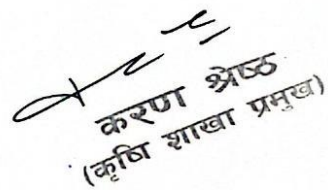 करण श्रेष्ठ
(कृषि शाखा प्रमुख)